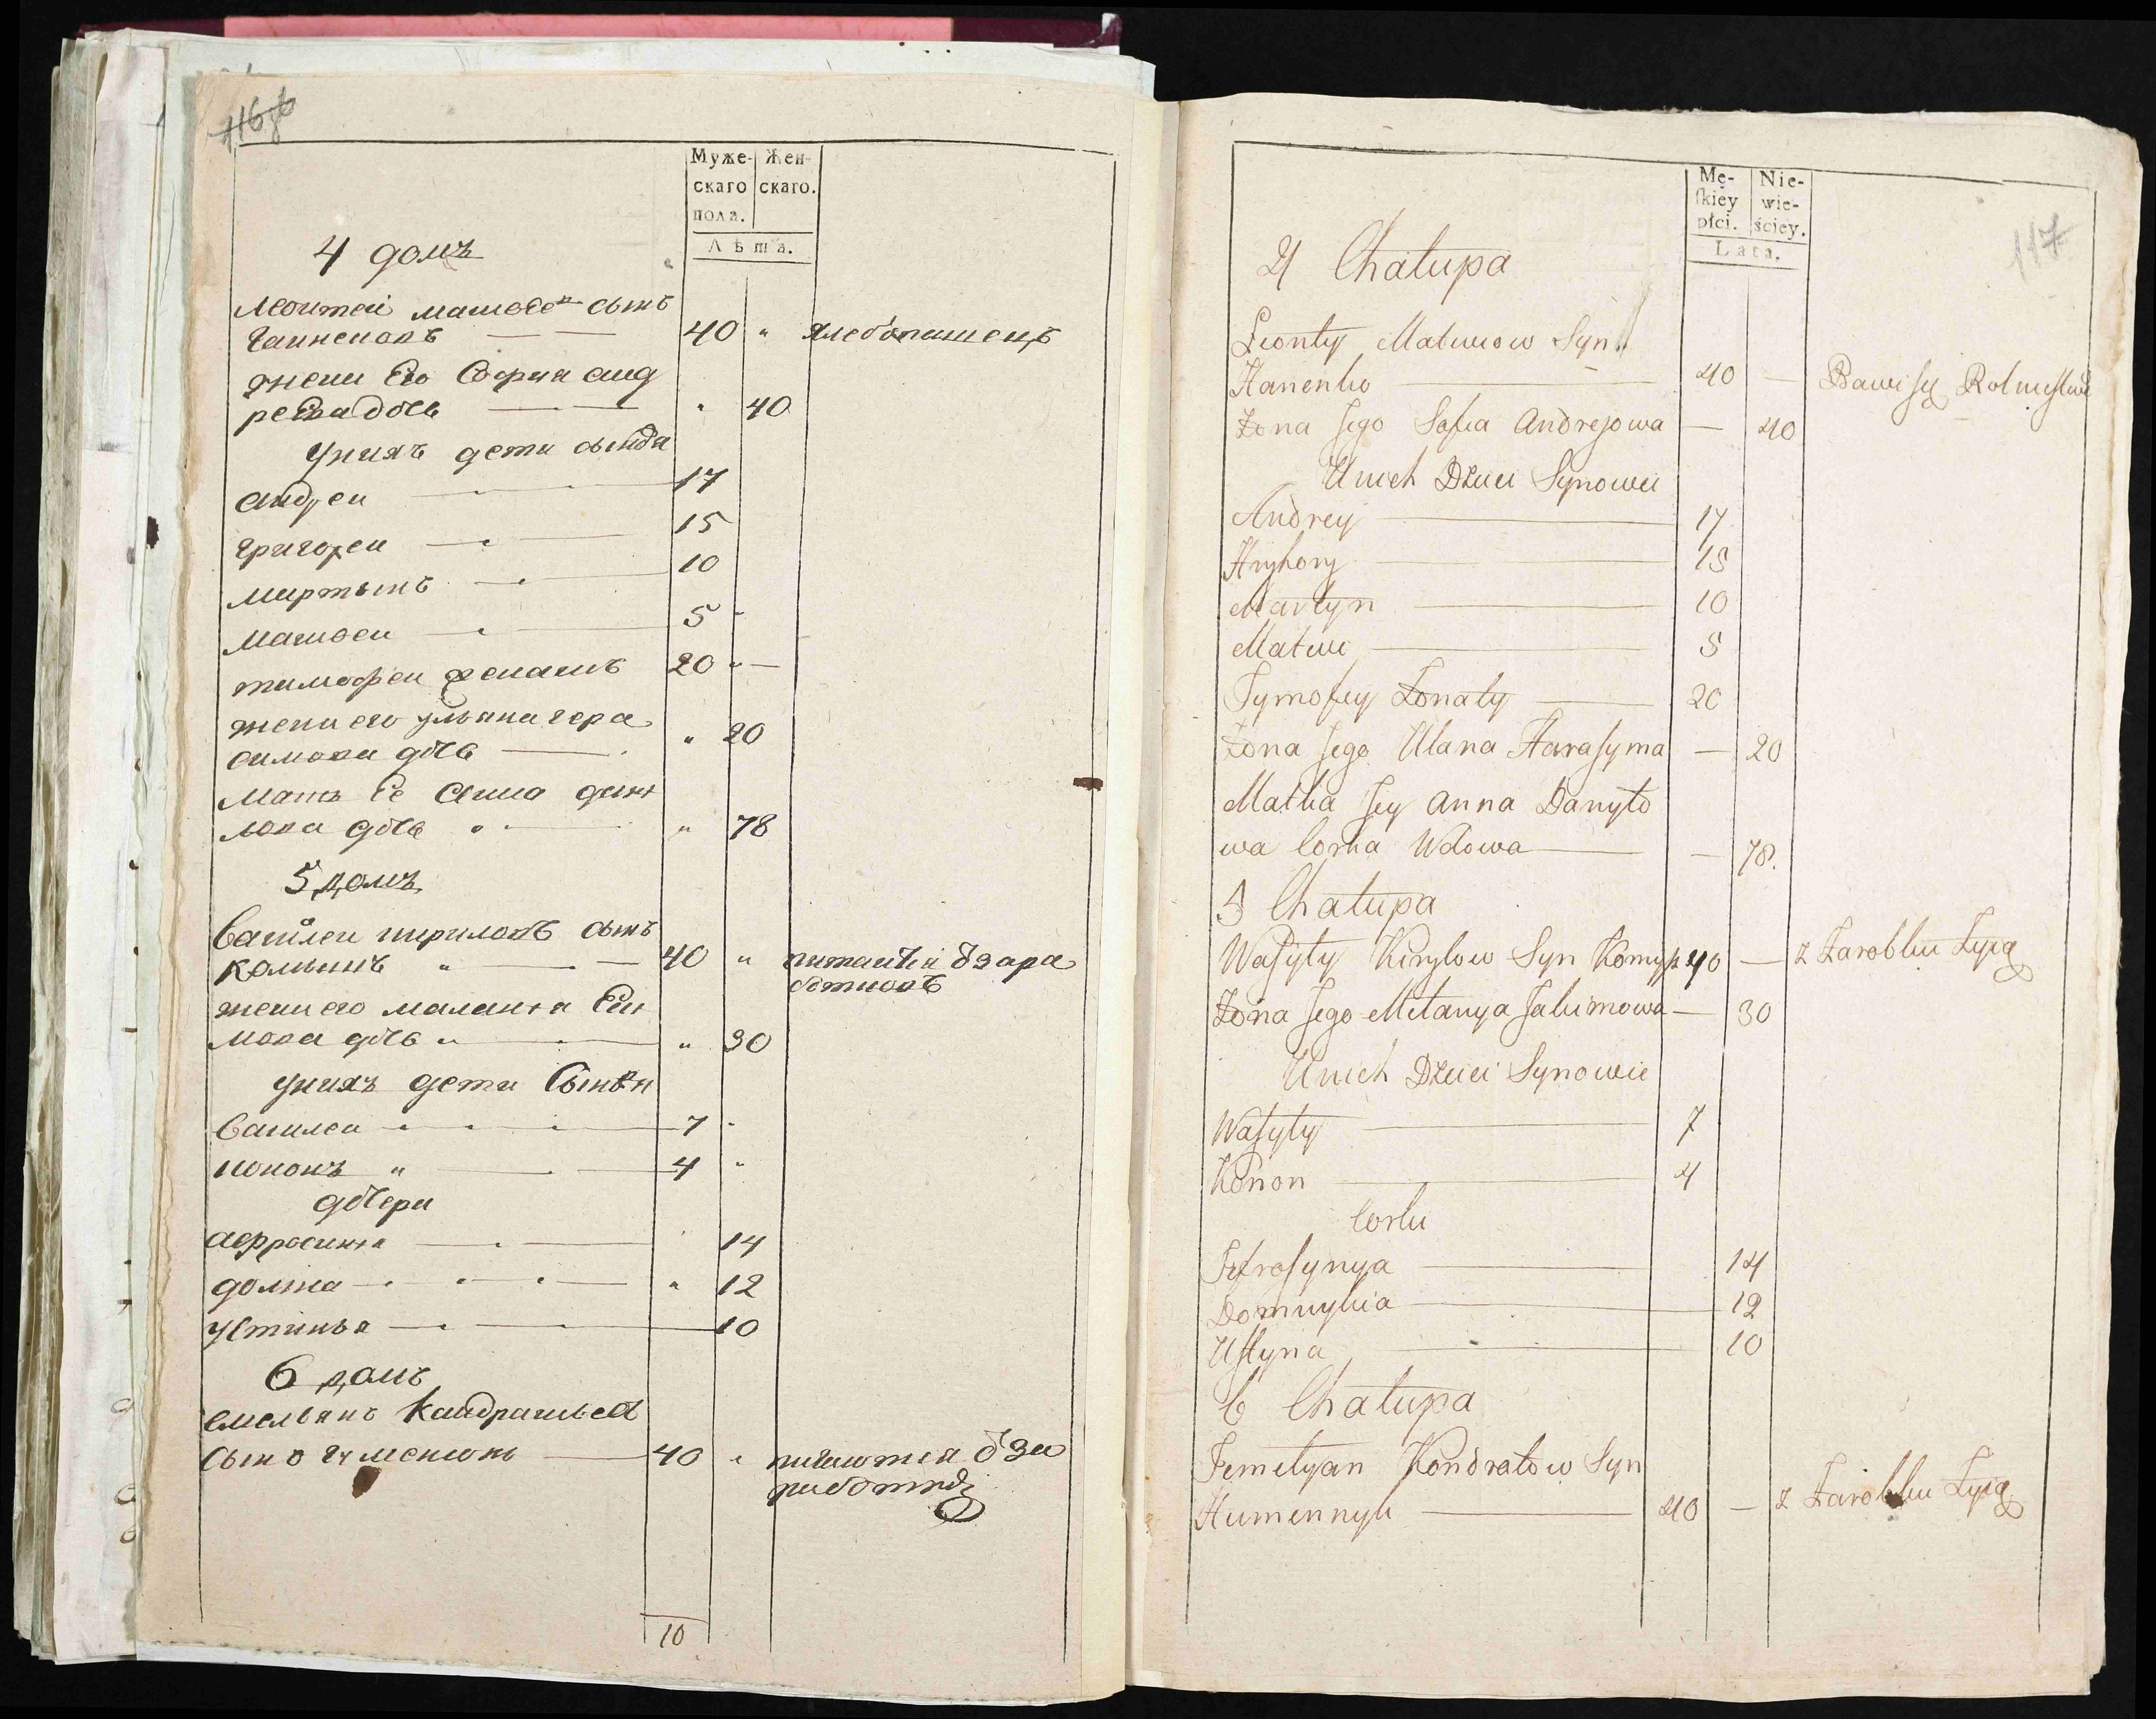 116 об
Муже-
скаго
пола.
Жен-
скаго.
Лѣта.
4 домъ
Леонтеи матвеевъ сынъ
Ганненокъ 40 " хлебопашецъ
жена Ево София анд
реева дочь " 40
у них дети сыновя
андреи 17
григореи 15
мартынъ 10
матвеи 5
тимофеи женатъ 20 "
жена его ульяна гера
симова дочь " 20
Мать Ее анна дани
лова дочь " 78
5 домъ
Василеи кириловъ сынъ
40 "
жена его маланиа
мова дочь " 30
у нихъ дети
Василеи 7
кононъ " 4
дочери
14
домна " 12
устинья 10
6 домъ
емельянъ Кандратьев
сынъ 40 "
10
117
Mę-
skiey
płci.
Nie-
wie-
ściey.
Lata.
4 Chałupa
Leonty Matwiow Syn
Hanenko 40 — Bawi się Rolnictwem
Żona Jego Sofia Andrejowa — 40
U nich Dzieci Synowie
Andrey 17
Hryhory 15
Martyn 10
Matwi 5
Tymofiy Żonaty 20
Żona Jego Ulana Harasyma — 20
Matka Jey Anna Danyło
wa Corka Wdowa — 78.
5 Chałupa
Wasyly Kiryłow Syn 40 — z Zarobku Żyią
Żona Jego Melanya Jakimowa — 30
U nich Dzieci Synowie
Wasyly 7
Konon 4
Corki
Jefrosynya 14
Domnykia 12
Ustyna 10
6 Chałupa
Jemelyan Kondratow Syn
Humennyk 40 — z Zarobku Żyią